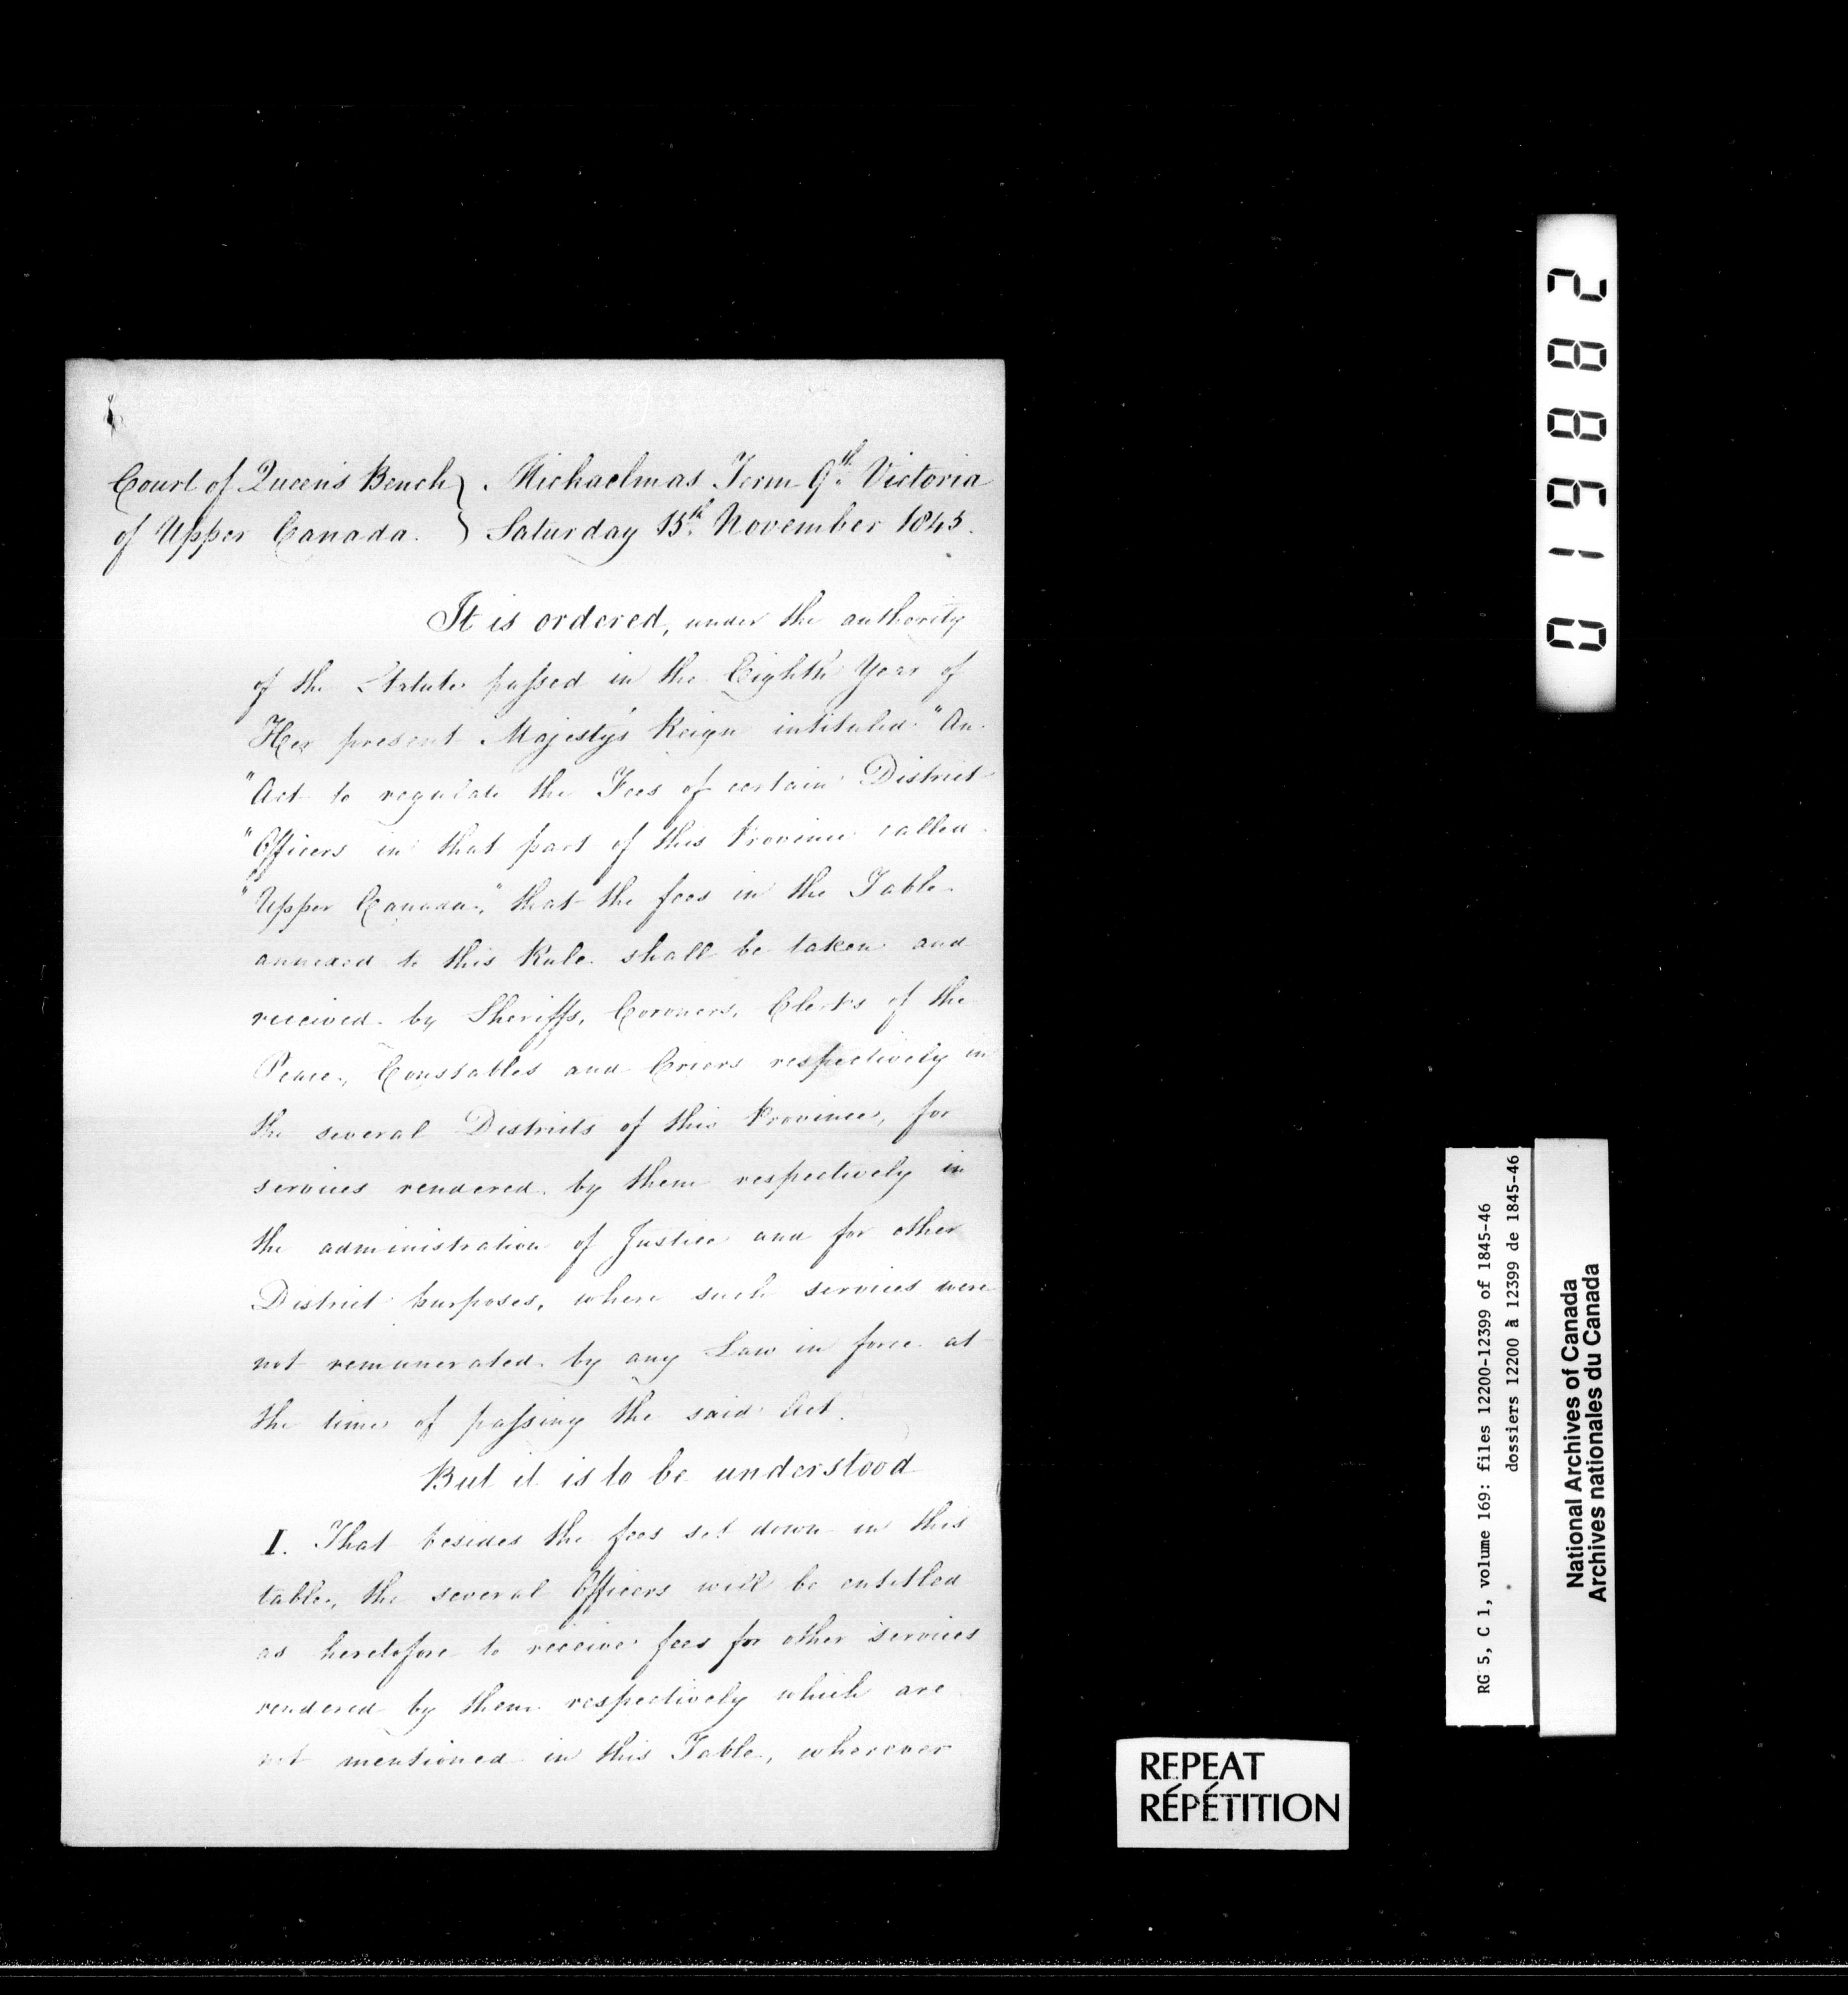 Court of Queen's Bench } Michaelmas Term 9th Victoria
of Upper Canada. } Saturday 15th November 1845.
It is ordered, under the authority
of the Statute passed in the Eighth Year of
Her present Majesty's Reign intituled "An
"Act to regulate the Fees of certain District
"Officers in that part of this Province called
"Upper Canada," that the fees in the Table
annexed to this Rule shall be taken and
received by Sheriffs, Coroners, Clerks of the
Peace, Constables and Criers respectively in
the several Districts of this Province, for
services rendered by them respectively in
the administration of Justice and for other
District purposes, where such services were
not remunerated by any Law in force at
the time of passing the said Act.
But it is to be understood
I. That besides the fees set down in this
table, the several Officers will be entitled
as heretofore to receive fees for other services
rendered by them respectively which are
not mentioned in this Table, wherever
019882
RG 5, C 1, volume 169: files 12200-12399 of 1845-46
dossiers 12200 à 12399 de 1845-46
National Archives of Canada
Archives nationales du Canada
REPEAT
RÉPÉTITION